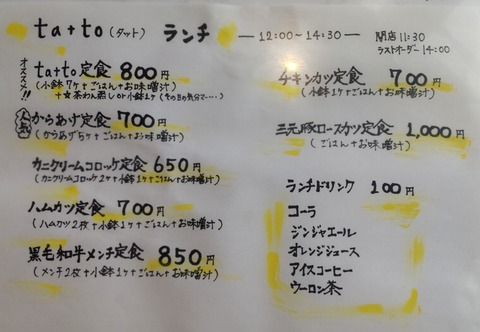 ta+to (タット) ランチ ー12:00〜14:30ー 開店 11:30
ラストオーダー 14:00
オススメ!!
ta++o定食 800円
(小鉢7ケ+ごはん+お味噌汁)
+☆茶わん蒸しor小鉢1ケ(その日の気分で・・・・)
人気
からあげ定食 700円
(からあげ5ケ+ごはん+お味噌汁)
カニクリームコロッケ定食 650円
(カニクリームコロッケ2ケ+小鉢1ケ+ごはん+お味噌汁)
ハムカツ定食 700円
(ハムカツ2枚+小鉢1ケ+ごはん+お味噌汁)
黒毛和牛メンチ定食 850円
(メンチ2枚+小鉢1ケ+ごはん+お味噌汁)
チキンカツ定食 700円
(小鉢1ケ+ごはん+お味噌汁)
三元豚ロースカツ定食 1,000円
(ごはん+お味噌汁)
ランチドリンク 100円
コーラ
ジンジャエール
オレンジジュース
アイスコーヒー
ウーロン茶